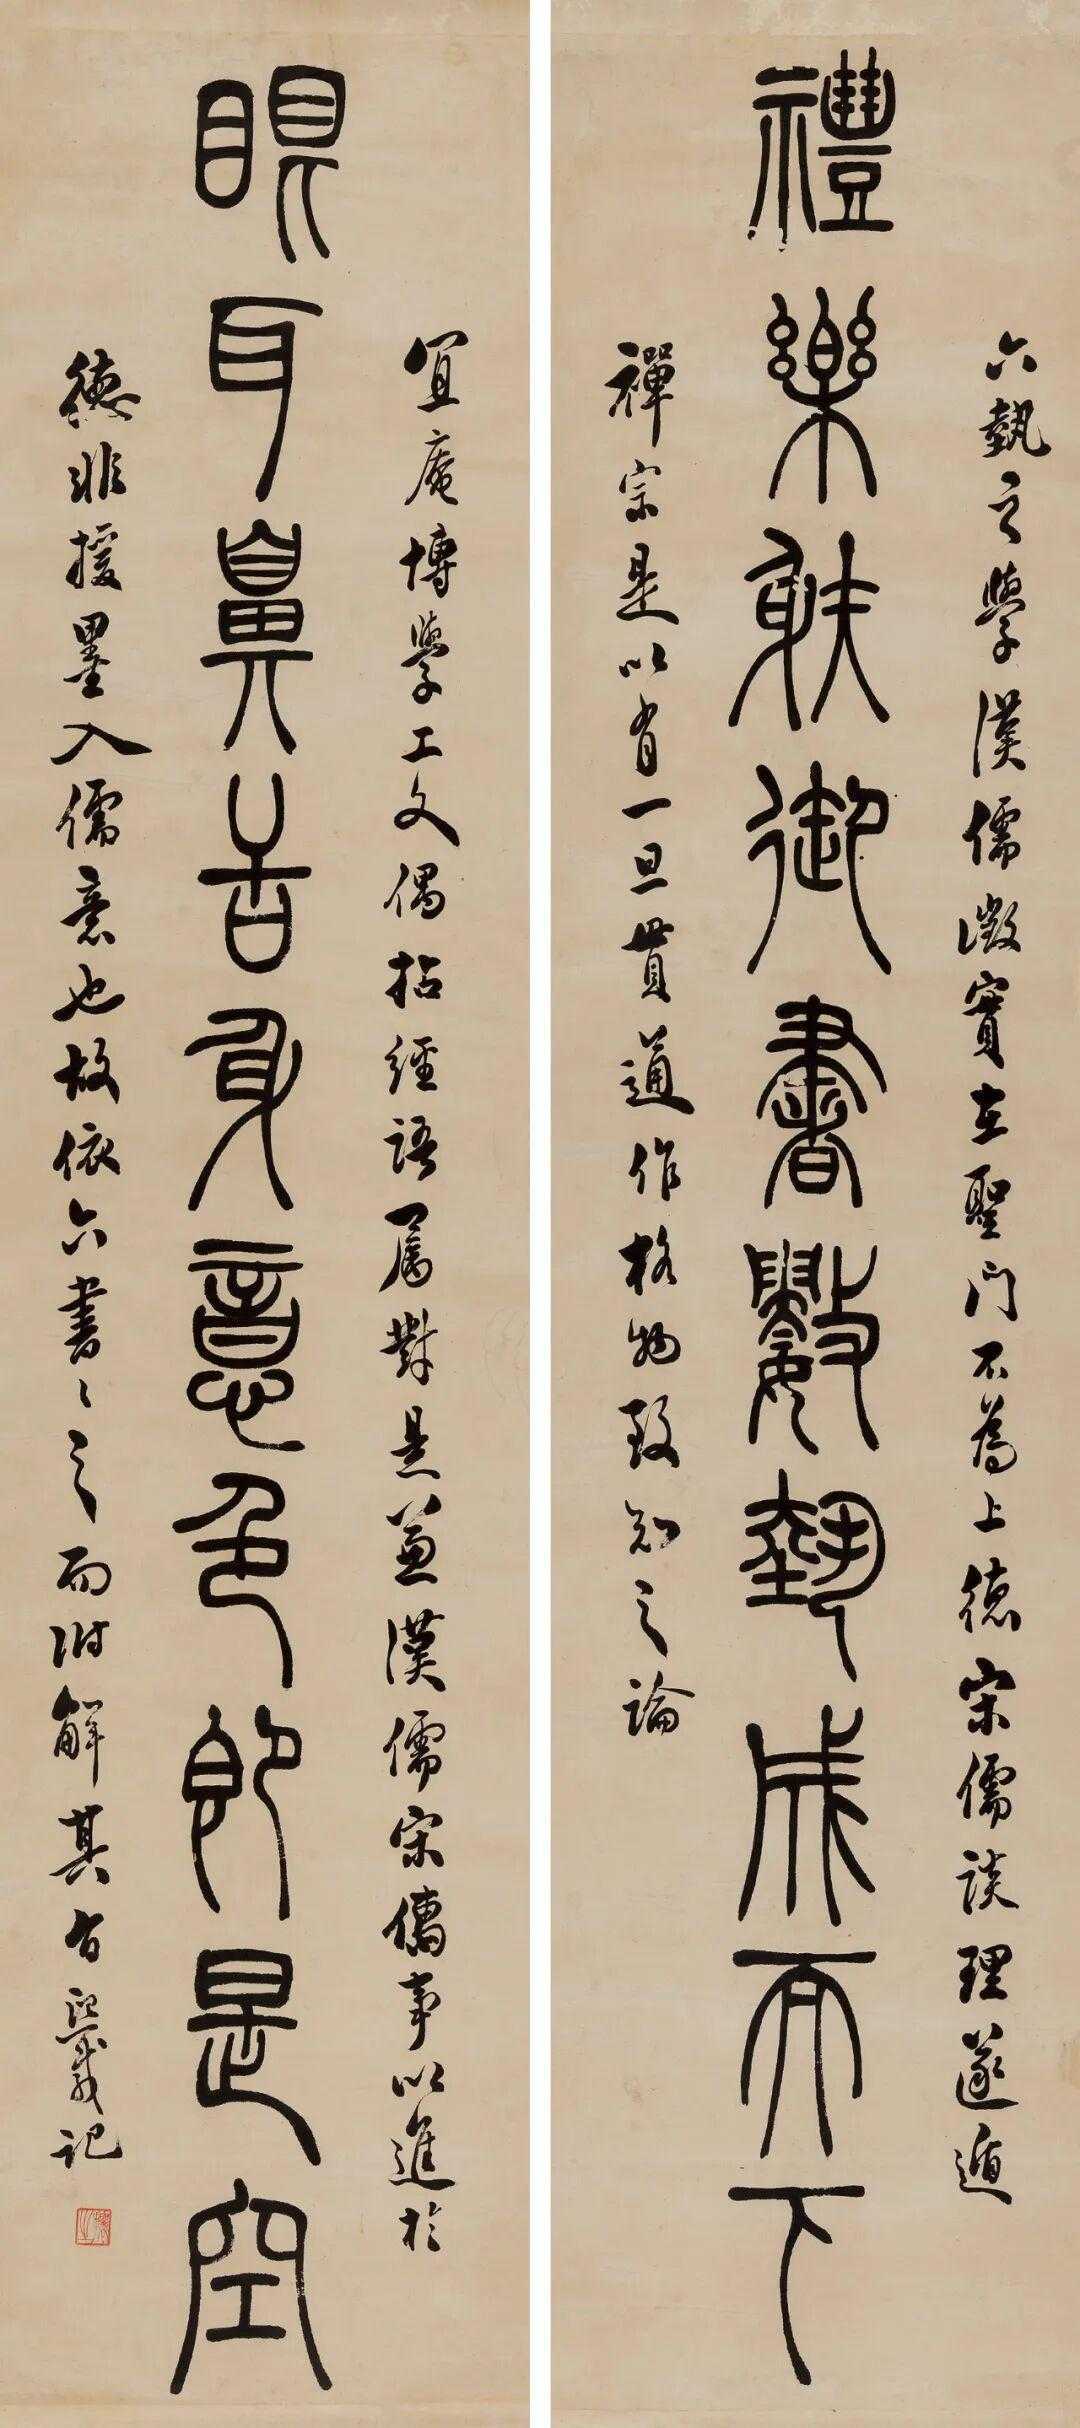 六埶之學漢儒徵實在聖門不為上德宋儒談理遂遁
禮樂射御書數埶成而下
禪宗是以有一旦貫通作格物致知之論
宜庵博學工文偶拈經語屬對是兼漢儒宋儒事以進於
眼耳鼻舌身意色即是空
德非援墨入儒意也故依六書〻之而附解其右熙載記